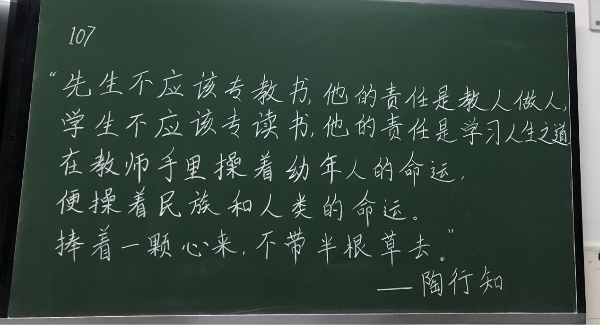 107
“先生不应该专教书,他的责任是教人做人,
学生不应该专读书,他的责任是学习人生之道
在教师手里操着幼年人的命运,
便操着民族和人类的命运。
捧着一颗心来,不带半根草去。”
——陶行知